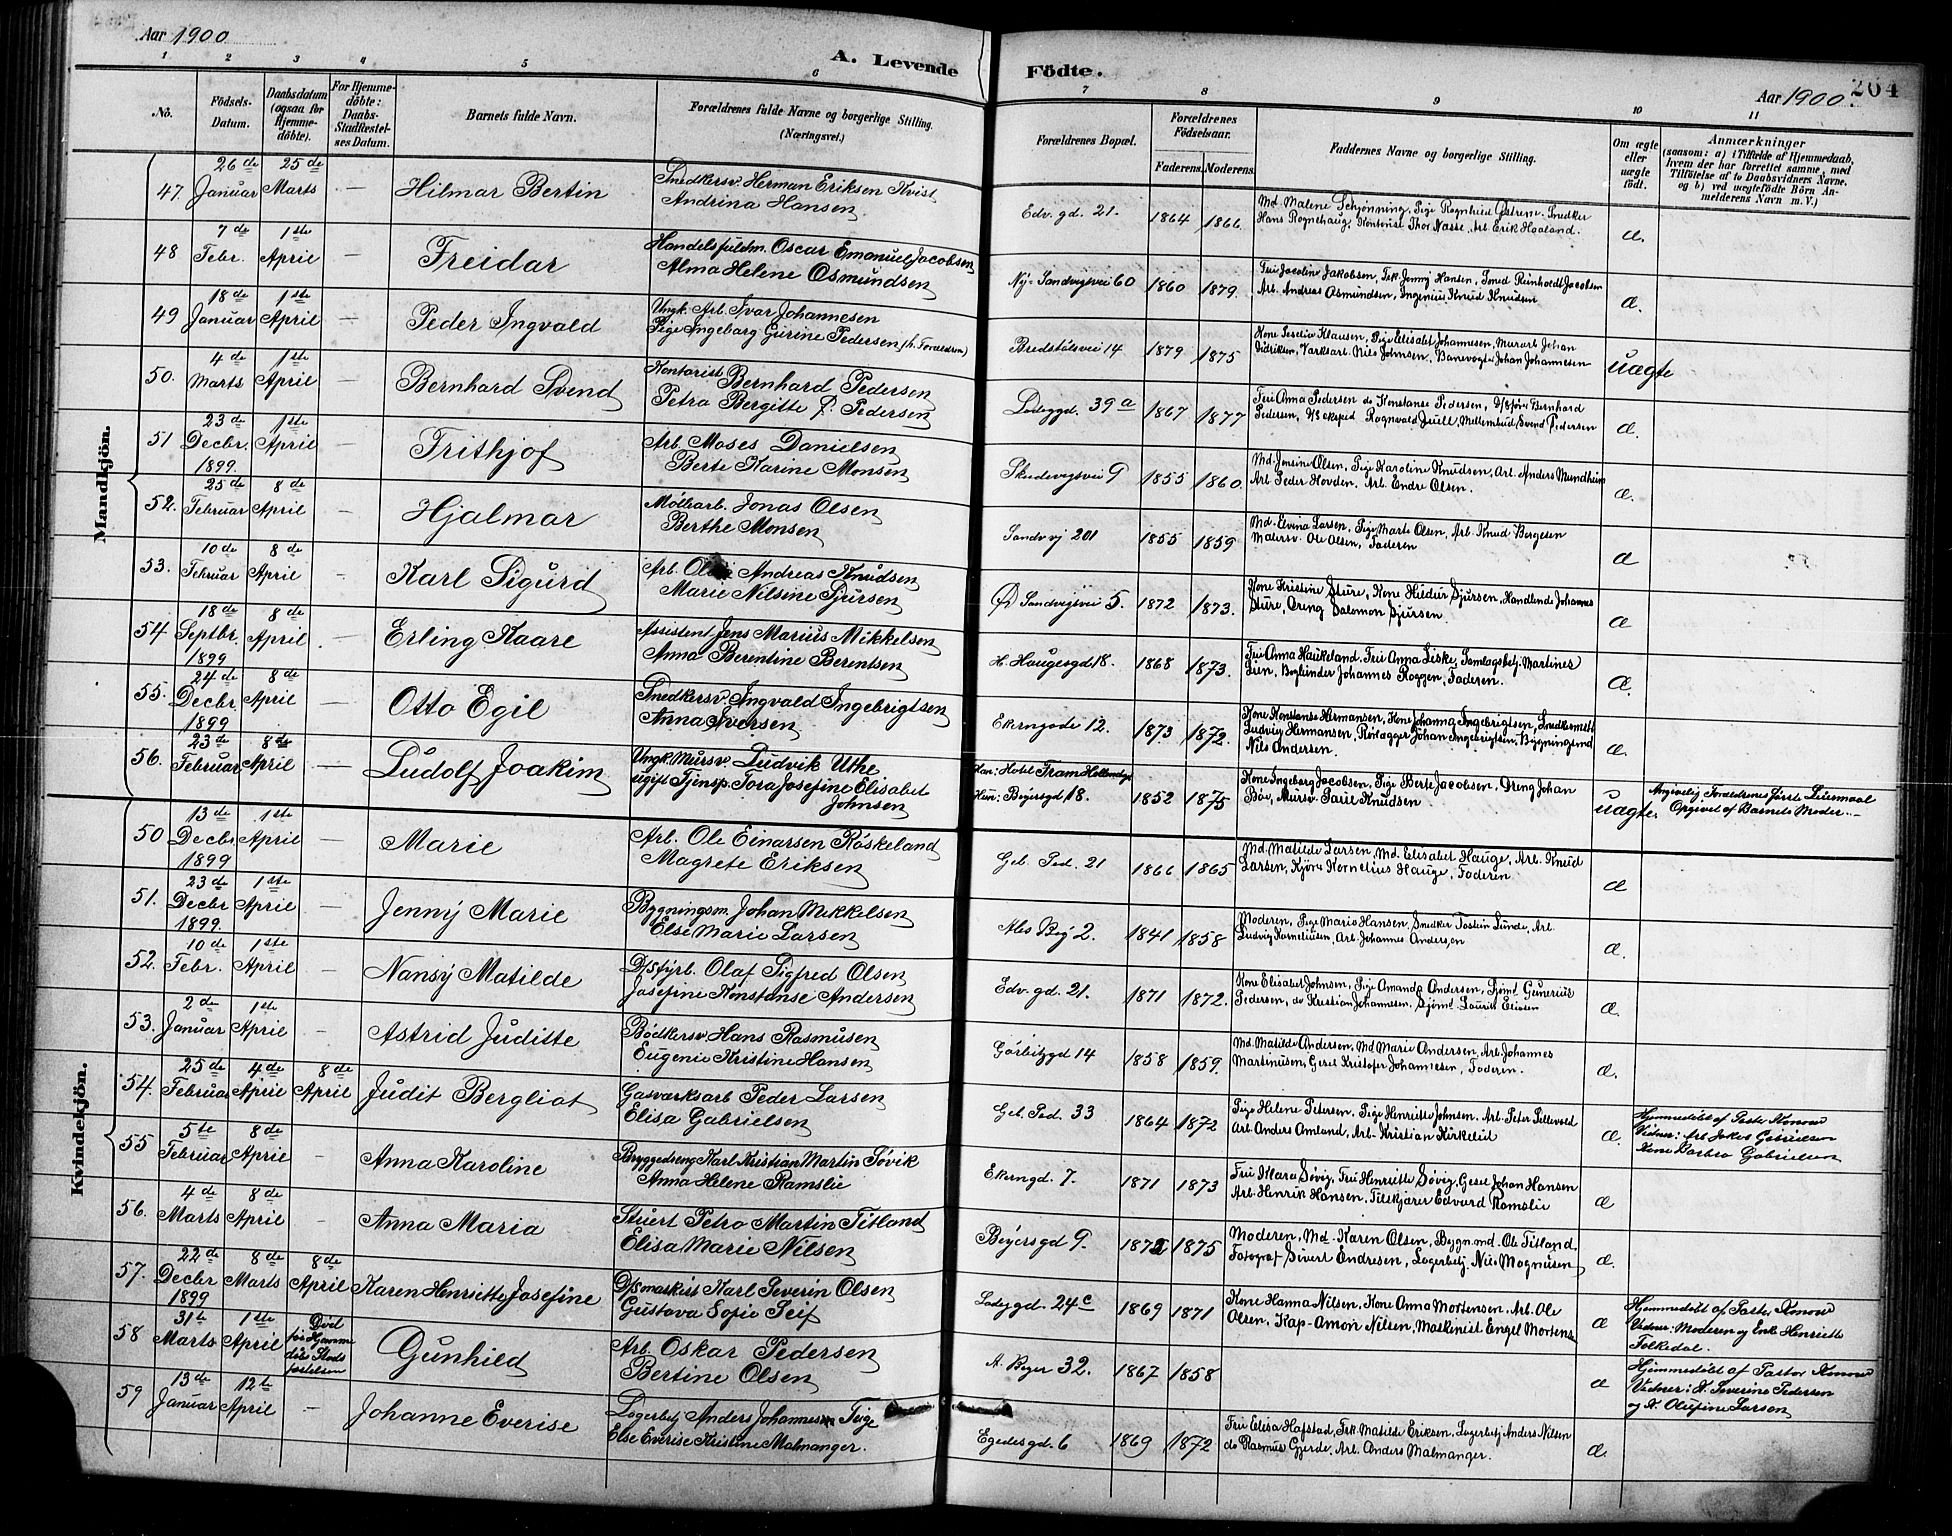 Aar 1900
A. Levende Födte.
Aar 1900. 204
1 2 3 4 5 6 7 8 9 10 11
No.
Födsels-Datum.
Daabsdatum (ogsaa for Hjemmedöbte).
For Hjemmedöbte: Daabs-Stadfæstelses Datum.
Barnets fulde Navn.
Forældrenes fulde Navne og borgerlige Stilling. (Næringsvei.)
Forældrenes Bopæl.
Forældrenes Födselsaar.
Faderens. Moderens.
Faddernes Navne og borgerlige Stilling.
Om ægte eller uægte födt.
Anmærkninger
(saasom: a) i Tilfælde af Hjemmedaab, hvem der har forrettet samme, med Tilföielse af to Daabsvidners Navne. og b) ved uægtefödte Börn Anmelderens Navn m. V.)
Mandkjön.
47. 26de Januar 25de Marts — Hilmar Bertin Snedkersv. Herman Eriksen Kvist Edv. gd. 21. 1864 1866. Md. Malene Schjønning, Pige Ragnhild Østrem, Snedker æ.
Andrina Hansen Hans Rognehaug, Kontorist Thor Nasse, Arb. Erik Haaland.
48 7de Febr. 1ste April — Freidar Handelsfuldm. Oscar Emanuel Jacobsen Ny-Sandvigsvei 60 1860 1879. Fru Jacolin Jakobsen, Frk. Jenny Hansen, Smed Reinholdt Jacobsen æ.
Alma Helene Osmundsen Arb. Andreas Osmundsen, Ingeniør Knud Knudsen
49 18de Januar 1ste April — Peder Ingvald Ungk. Arb. Ivar Johannesen Bredstølsvei 14 1879 1875 Kone Klausen, Pige Elisabet Johannesen, Murarb. Johan uægte
Pige Ingeborg Gurine Pedersen (h. Forældren) Didriksen, Værksarb. Nils Johnsen, Banevogter Johan Johannesen
50. 4de Marts 1ste April — Bernhard Svend Kontorist Bernhard Pedersen Ladegd. 39a 1867 1877 Fru Anna Pedersen do Konstanse Pedersen, Bernhard æ.
Petra Bergitte f. Pedersen Pedersen, Rognvald Juell, Svend Pedersen
51 23de Decbr. 1899. 1ste April — Frithjof Arb. Moses Danielsen Skudevigsvei 9 1855 1860. Md. Jensine Olsen, Pige Karoline Knudsen, Arb. Anders Mundheim æ.
Berte Karine Monsen Arb. Peder Hovden, Arb. Endre Olsen.
52. 25de Februar 8de April — Hjalmar Møllearb. Jonas Olsen Sandvg 201 1855 1859 Md. Elvina Larsen, Pige Marte Olsen, Arb. Knud Bergesen æ
Berthe Monsen Malersv. Ole Olsen, Faderen
53. 10de Februar 8de April — Karl Sigurd Arb. Andreas Knudsen Ø Sandvigsvei 5. 1872 1873. Kone Kristine Sture, Kone Hildur Sjursen, Handlende Johannes æ
Marie Nilsine Sjursen Sture, Dreng Salomon Sjursen.
54 18de Septbr. 1899 8de April — Erling Kaare Assistent Jens Marius Mikkelsen H. Haugesgd 18. 1868 1873. Fru Anna Haukeland, Fru Anna Liske, Martines æ.
Anna Berentine Berentsen Lien, Johannes Roggen, Faderen.
55. 24de Decbr. 1899 8de April — Otto Egil Snedkersv. Ingvald Ingebrigtsen Ekrengade 12. 1873 1872. Kone Konstanse Hermansen, Kone Johanna Ingebrigtsen, Snedkermstr. æ.
Anna Iversen Ludvig Hermansen, Rørlægger Johan Ingebrigtsen, Bygningsmd
Nils Andersen.
56. 23de Februar 8de April — Ludolf Joakim Ungk. Mursv. Ludvik Uthe Han: Hotel Fram Hollendgt 1852 1875 Kone Ingeborg Jacobsen, Pige Berte Jacobsen, Dreng Johan uægte. Angivelig Forældrenes første Leiermaal
ugift Tjensp. Tora Josefine Elisabet Johnsen Hun: Beyersgd 18. Bøe, Mursv. Knudsen Opgivet af Barnets Moder.
Kvindekjön.
50 13de Decbr. 1899 1ste April — Marie Arb. Ole Einarsen Röskeland Geb. Ped. 21 1866 1865 Md. Matilde Larsen, Md. Elisabet Hauge, Arb. Knud æ
Magrete Eriksen Larsen, Kornelius Hauge, Faderen
51. 23de Decbr. 1899. 1ste April — Jenny Marie Bygningsm. Johan Mikkelsen Abs Bey 2. 1841 1858 Moderen, Pige Marie Hansen, Snedker Tostein Lunde, Arb. æ.
Else Marie Larsen Ludvig Korneliusen, Arb. Johannes Andersen
52. 10de Febr. 1ste April — Nansy Matilde D/sfyrb. Olaf Sigfred Olsen Edv. gd. 21. 1871 1872. Kone Elisabet Johnsen, Pige Amanda Andersen, Sjømd. Gunerius æ.
Josefine Konstanse Andersen Pedersen, do Kristian Johannesen, Sjømd. Laurits Eliasen
53. 2de Januar 1ste April — Astrid Juditte Bödkersv. Hans Rasmusen Gørbitzgd 14 1858 1859. Md. Matilde Andersen, Md Marie Andersen, Arb. Johannes æ.
Eugenie Kristine Hansen Martinusen, Gesel Kristofer Johannesen, Faderen.
54. 25de Februar 4de April 8de April Judit Bergliot Gasværksarb Peder Larsen Geb. Ped. 33 1864 1872 Pige Helene Petersen, Pige Henriette Johnsen, Arb. Peter Settevold æ. Hjemmedøbt af Pastor Konow
Elisa Gabrielsen Arb. Anders Amland, Arb. Kristian Kirkeeid Vidner: Arb. Jakob Gabrielsen
Kone Barbro Gabrielsen
55 5te Februar 8de April — Anna Karoline Bryggedreng Karl Kristian Martin Søvik Ekrengd. 7. 1871 1873 Fru Mara Søvig, Fru Henriette Søvig, Gesel Johan Hansen æ
Anna Helene Ramslie Arb. Henrik Hansen, Tilskjærer Edvard Ramslie
56. 4de Marts 8de April — Anna Maria Stuert Petro Martin Titland Beyersgd 9. 1872 1875 Moderen, Md. Karen Olsen, Bygn.md. Ole Titland, æ.
Elisa Marie Nilsen Fotograf Sivert Endresen, Lagerbetj. Nils Magnusen
57. 22de Decbr 1899 8de Marts 8de April Karen Henriette Josefine D/smaskist Karl Severin Olsen Ladegd. 24c 1869 1871 Kone Hanna Nilsen, Kone Anna Mortensen, Arb. Ole æ Hjemmedøbt af Pastor Konow
Gustava Sofie Seif Olsen, Kap. Amon Nilsen, Maskinist Engel Mortens. Vidner: Moderen og Enke Henriette
Folkedal.
58 31te Marts 1ste April Død før Hjemmedåb Stadfæstelsen Gunhild Arb. Oskar Pedersen A. Beyer 32. 1867 1858 æ Hjemmedøbt af Pastor Konow
Bertine Olsen Vidner: K. Severine Pedersen
og K. Olufine Larsen
59 13de Januar 12te April — Johanne Everise Lagerbetj Anders Johannesen Teige Egedesgd. 6 1869 1872 Fru Elisa Hafstad, Frk. Matilde Eriksen, Lagerbetj Anders Nilsen æ.
Else Everise Kristine Malmanger. do Rasmus Gjerde, Arb. Anders Malmanger.